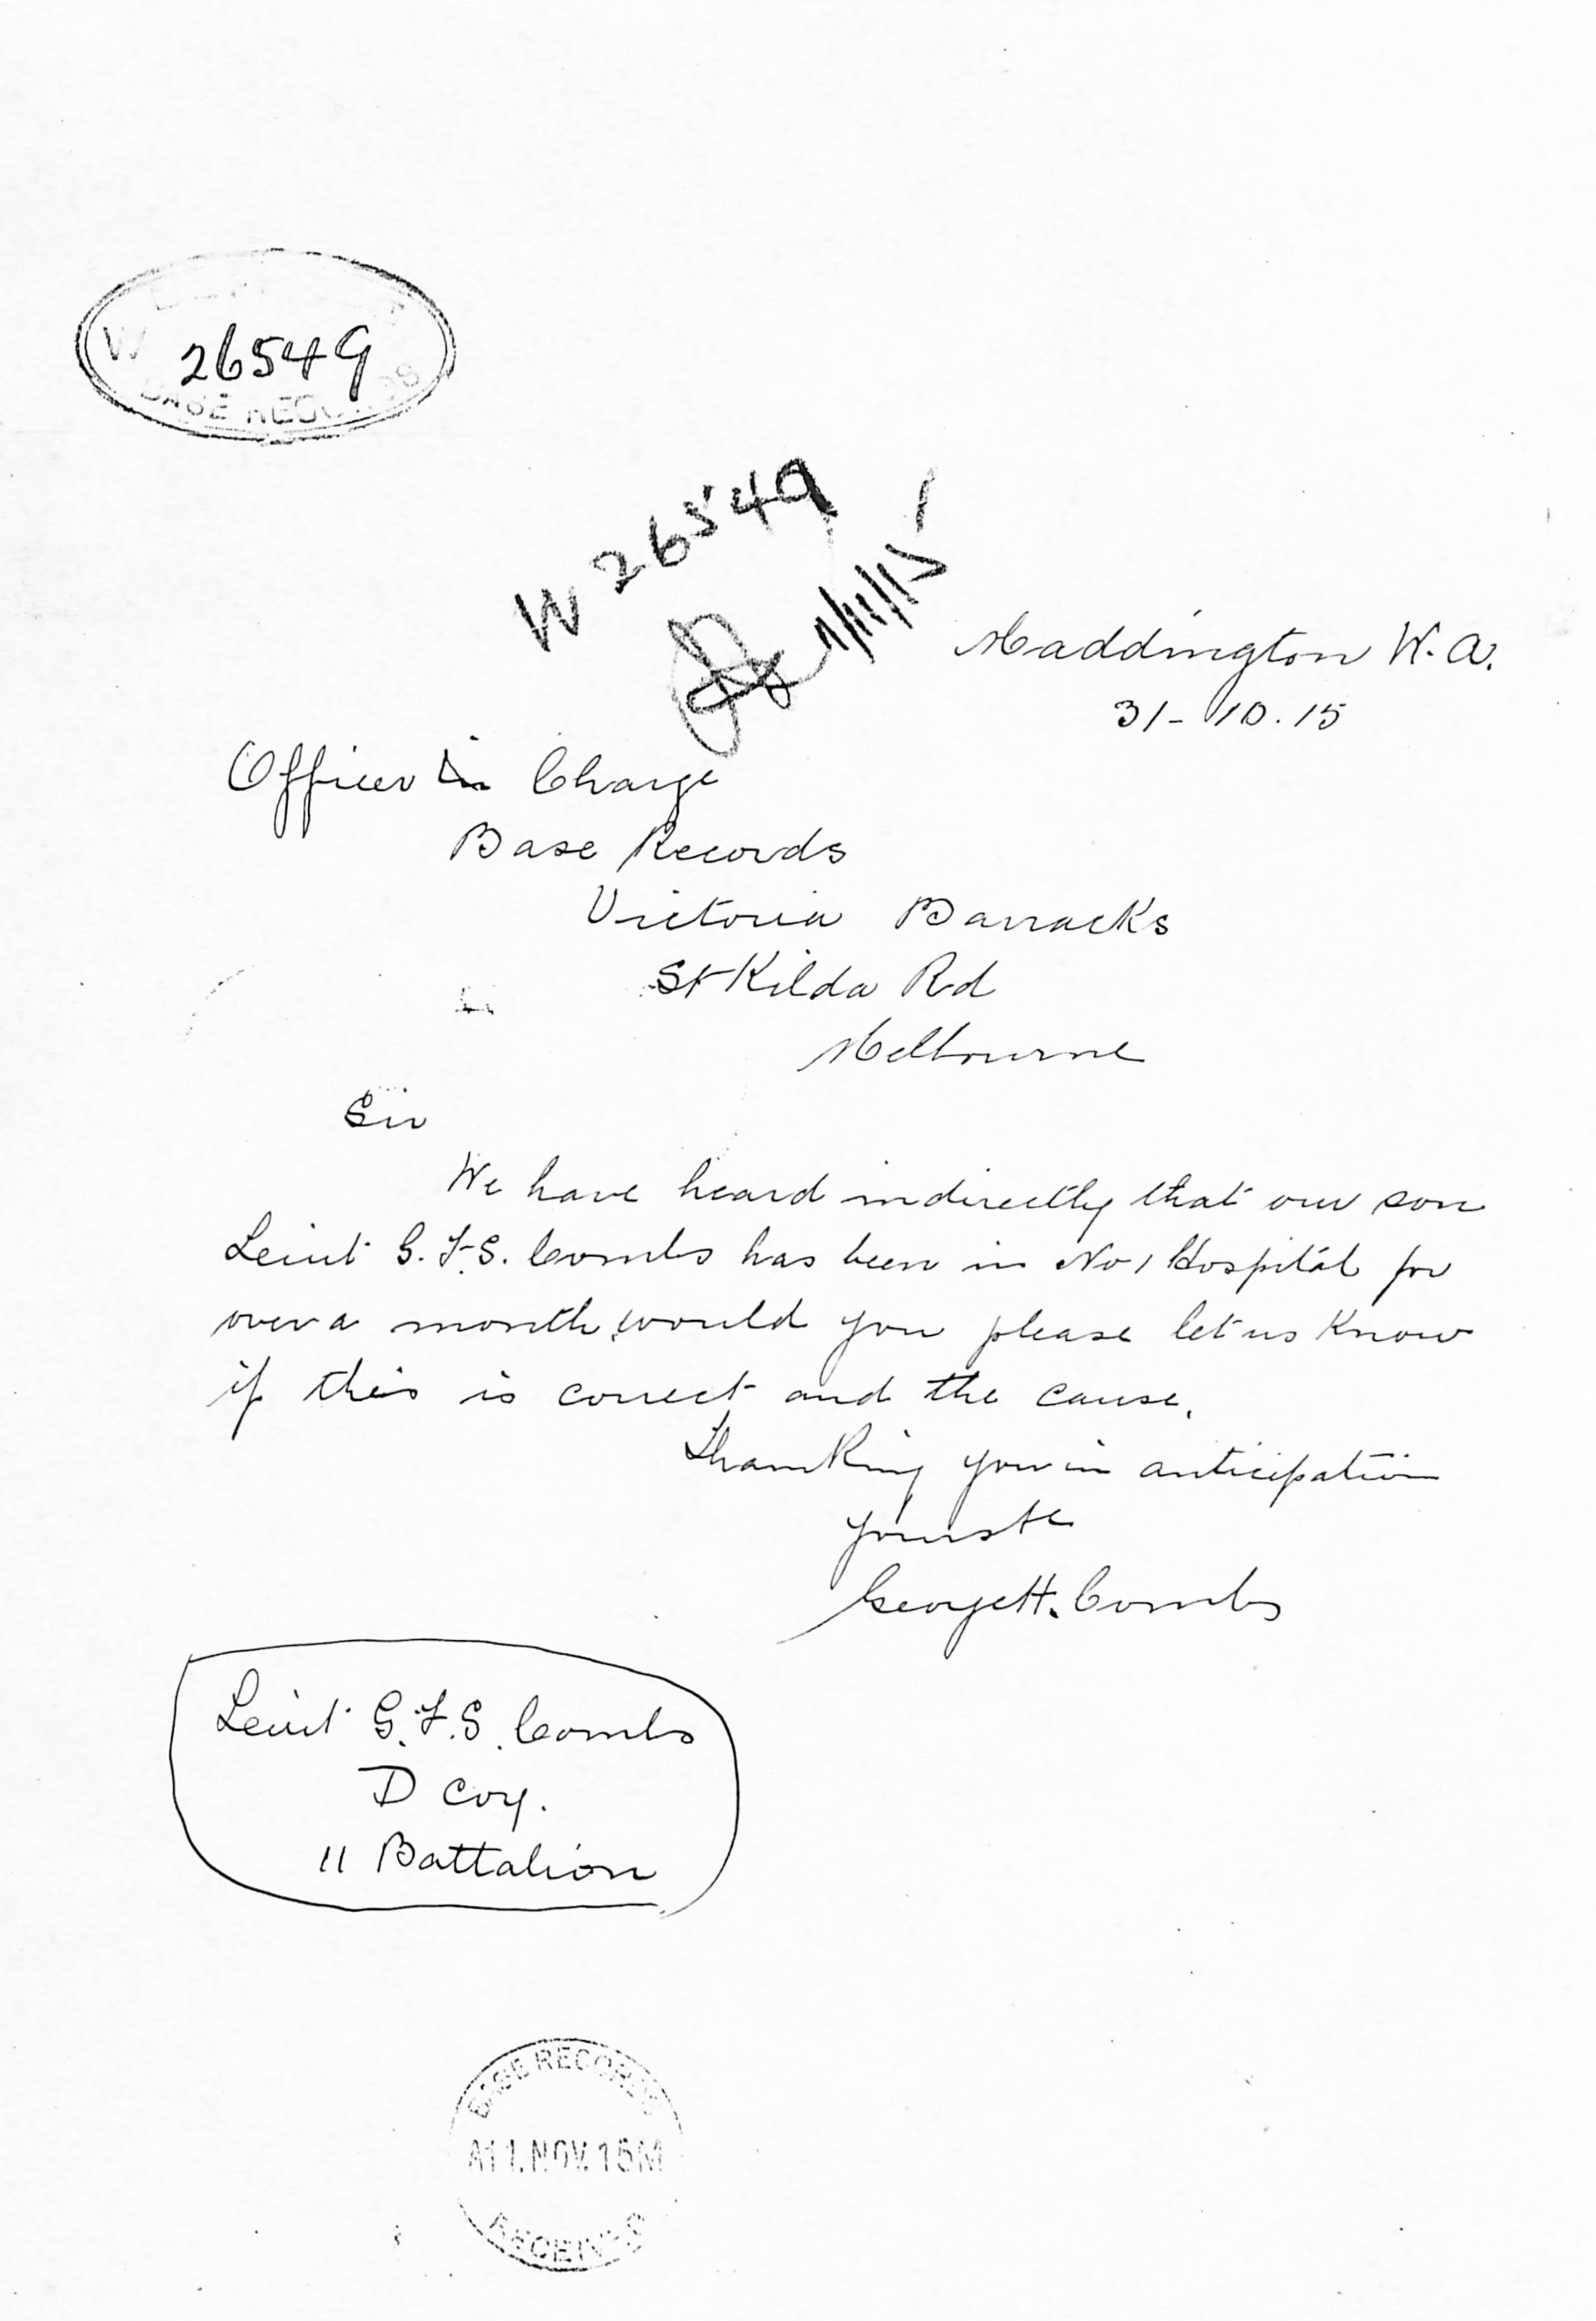 W
26549
BASE RECORDS
W 26549
11/11/15
Maddington W.A.
31-10.15
Officer in Charge
Base Records
Victoria Barracks
St Kilda Rd
Melbourne
Sir
We have heard indirectly that our son
Leiut G.F.S. Combs has been in No 1 Hospital for
over a month, would you please let us know
if this is correct and the cause.
Thanking you in anticipation
yours tc
George H. Combs
Leiut G.F.S. Combs
D Coy.
11 Battalion
BASE RECORDS
A11.NOV.15M
RECEIVED